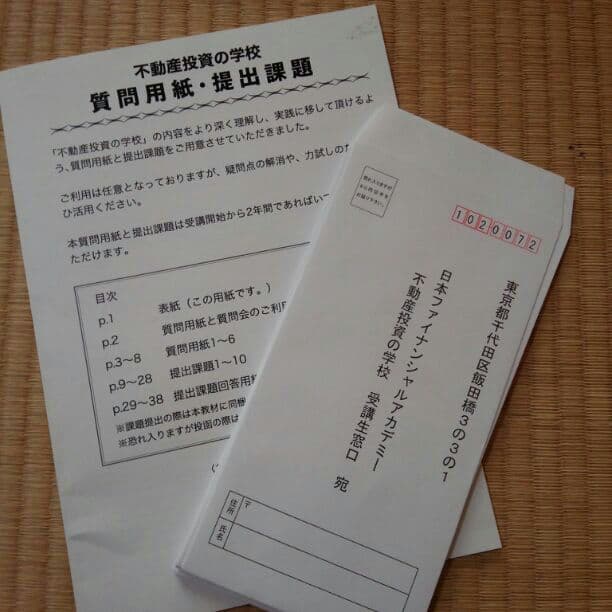 不動産投資の学校
質問用紙・提出課題
「不動産投資の学校」の内容をより深く理解し、実践に移して頂けるよ
う、質問用紙と提出課題をご用意させていただきました。
ご利用は任意となっておりますが、疑問点の解消や、力試しのた
ひ活用ください。
本質問用紙と提出課題は受講開始から2年間であればいつ
ただけます。
目次
p.1 表紙(この用紙です。)
p.2 質問用紙と質問会のご利用
p.3〜8 質問用紙1〜6
p.9〜28 提出課題1〜10
p.29〜38 提出課題回答用紙
※課題提出の際は本教材に同梱
※恐れ入りますが投函の際は
恐れ入りますが
切手を
お貼り下さい。
1020072
東京都千代田区飯田橋3の3の1
日本ファイナンシャルアカデミー
不動産投資の学校 受講生窓口 宛
住所 〒
氏名